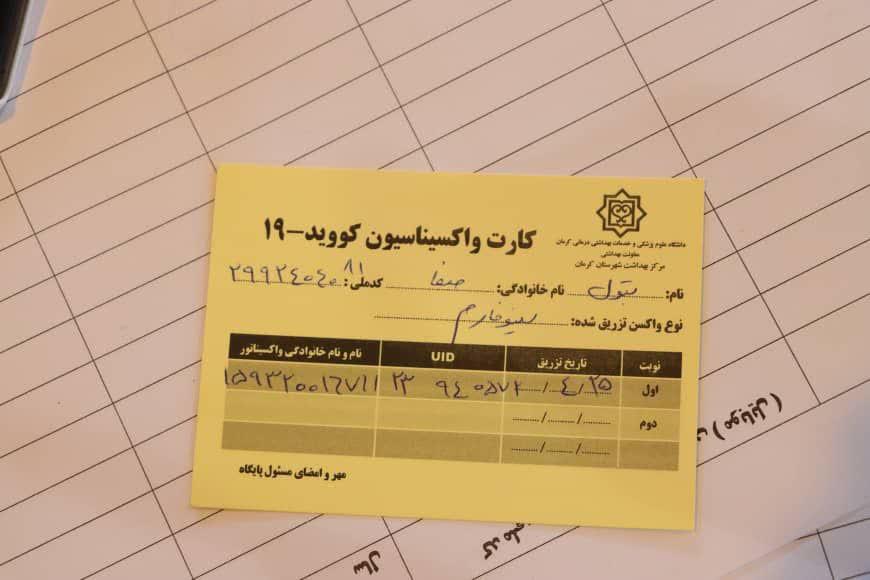 دانشگاه علوم پزشکی و خدمات بهداشتی درمانی کرمان
معاونت بهداشتی
مرکز بهداشت شهرستان کرمان
کارت واکسیناسیون کووید-۱۹
نام: بتول نام خانوادگی: صفا کدملی: ۲۹۹۲۴۰۴۰۸۱
نوع واکسن تزریق شده: سینوفارم
نوبت تاریخ تزریق UID نام و نام خانوادگی واکسیناتور
اول ۲۵/۴/
دوم
مهر و امضای مسئول پایگاه
(موبایل)
سال